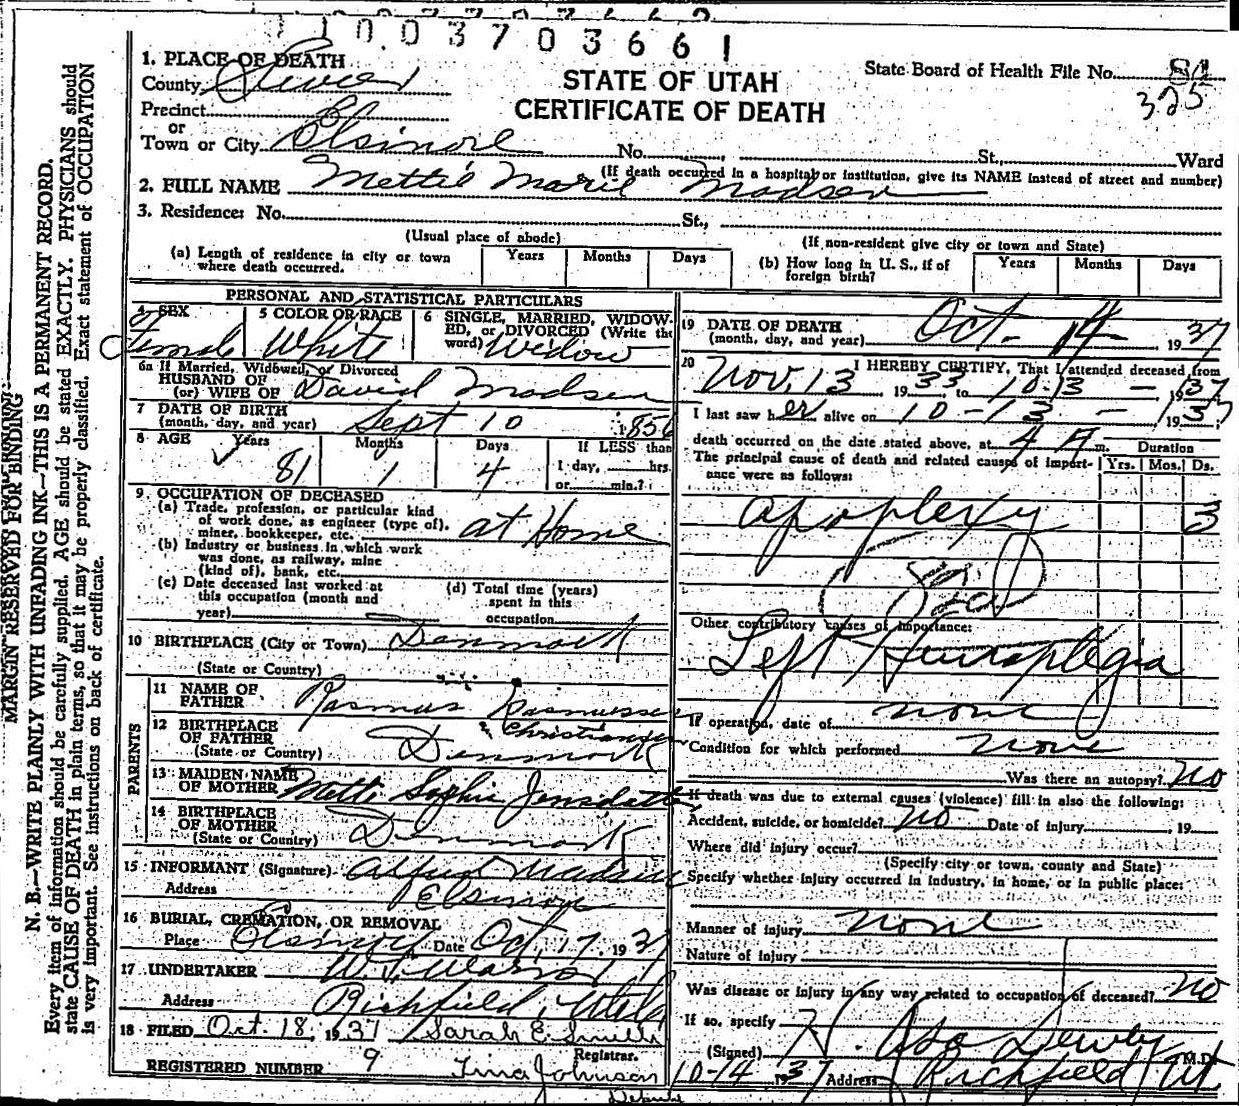 10 03703661
1. PLACE OF DEATH
County Sevier
STATE OF UTAH
CERTIFICATE OF DEATH
State Board of Health File No. 81
325
Precinct
or
Town or City Elsinore No. St., Ward
(If death occurred in a hospital or institution, give its NAME instead of street and number)
2. FULL NAME Mettie Marie Madsen
3. Residence: No. St.,
(Usual place of abode) (If non-resident give city or town and State)
(a) Length of residence in city or town where death occurred. Years Months Days
(b) How long in U. S., if of foreign birth? Years Months Days
PERSONAL AND STATISTICAL PARTICULARS
SEX Female
5 COLOR OR RACE White
6 SINGLE, MARRIED, WIDOW-
ED, or DIVORCED (Write the
word) Widow
6a If Married, Widowed, or Divorced
HUSBAND OF
(or) WIFE OF David Madsen
7 DATE OF BIRTH
(month, day, and year) Sept 10 1856
8 AGE Years Months Days If LESS than
81 1 4 1 day, hrs.
or min.?
9. OCCUPATION OF DECEASED
(a) Trade, profession, or particular kind
of work done, as engineer (type of),
miner, bookkeeper, etc. at Home
(b) Industry or business in which work
was done, as railway, mine
(kind of), bank, etc.
(c) Date deceased last worked at
this occupation (month and
year)
(d) Total time (years)
spent in this
occupation
10 BIRTHPLACE (City or Town) Denmark
(State or Country)
PARENTS
11 NAME OF
FATHER Rasmus Rasmussen
Christiansen
12 BIRTHPLACE
OF FATHER
(State or Country) Denmark
13 MAIDEN NAME
OF MOTHER Mette Sophie Jensdatter
14 BIRTHPLACE
OF MOTHER
(State or Country) Denmark
15 INFORMANT (Signature) Alfred Madsen
Address Elsinore
16 BURIAL, CREMATION, OR REMOVAL
Place Elsinore Date Oct. 17, 1937
17 UNDERTAKER
Address Richfield, Utah
18 FILED Oct. 18, 1937 Sarah E. Smith
Registrar.
REGISTERED NUMBER 9 Tina Johnson
19 DATE OF DEATH
(month, day, and year) Oct. 14 1937
20 I HEREBY CERTIFY, That I attended deceased from
Nov. 13 1933, to 10-13- 1937
I last saw her alive on 10-13- 1937;
death occurred on the date stated above, at 4 A m. Duration
The principal cause of death and related causes of import-
ance were as follows: Yrs. Mos. Ds.
apoplexy 3
Other contributory causes of importance:
Left Hemiplegia
If operation, date of none
Condition for which performed None
Was there an autopsy? No
If death was due to external causes (violence) fill in also the following:
Accident, suicide, or homicide? No Date of injury , 19
Where did injury occur?
(Specify city or town, county and State)
Specify whether injury occurred in industry, in home, or in public place:
Manner of injury none
Nature of injury
Was disease or injury in any way related to occupation of deceased? No
If so, specify
(Signed) H. Asa Dewey M.D.
10-14 1937 Address Richfield Ut
MARGIN RESERVED FOR BINDING
N. B.—WRITE PLAINLY WITH UNFADING INK—THIS IS A PERMANENT RECORD.
Every item of information should be carefully supplied. AGE should be stated EXACTLY. PHYSICIANS should
state CAUSE OF DEATH in plain terms, so that it may be properly classified. Exact statement of OCCUPATION
is very important. See instructions on back of certificate.